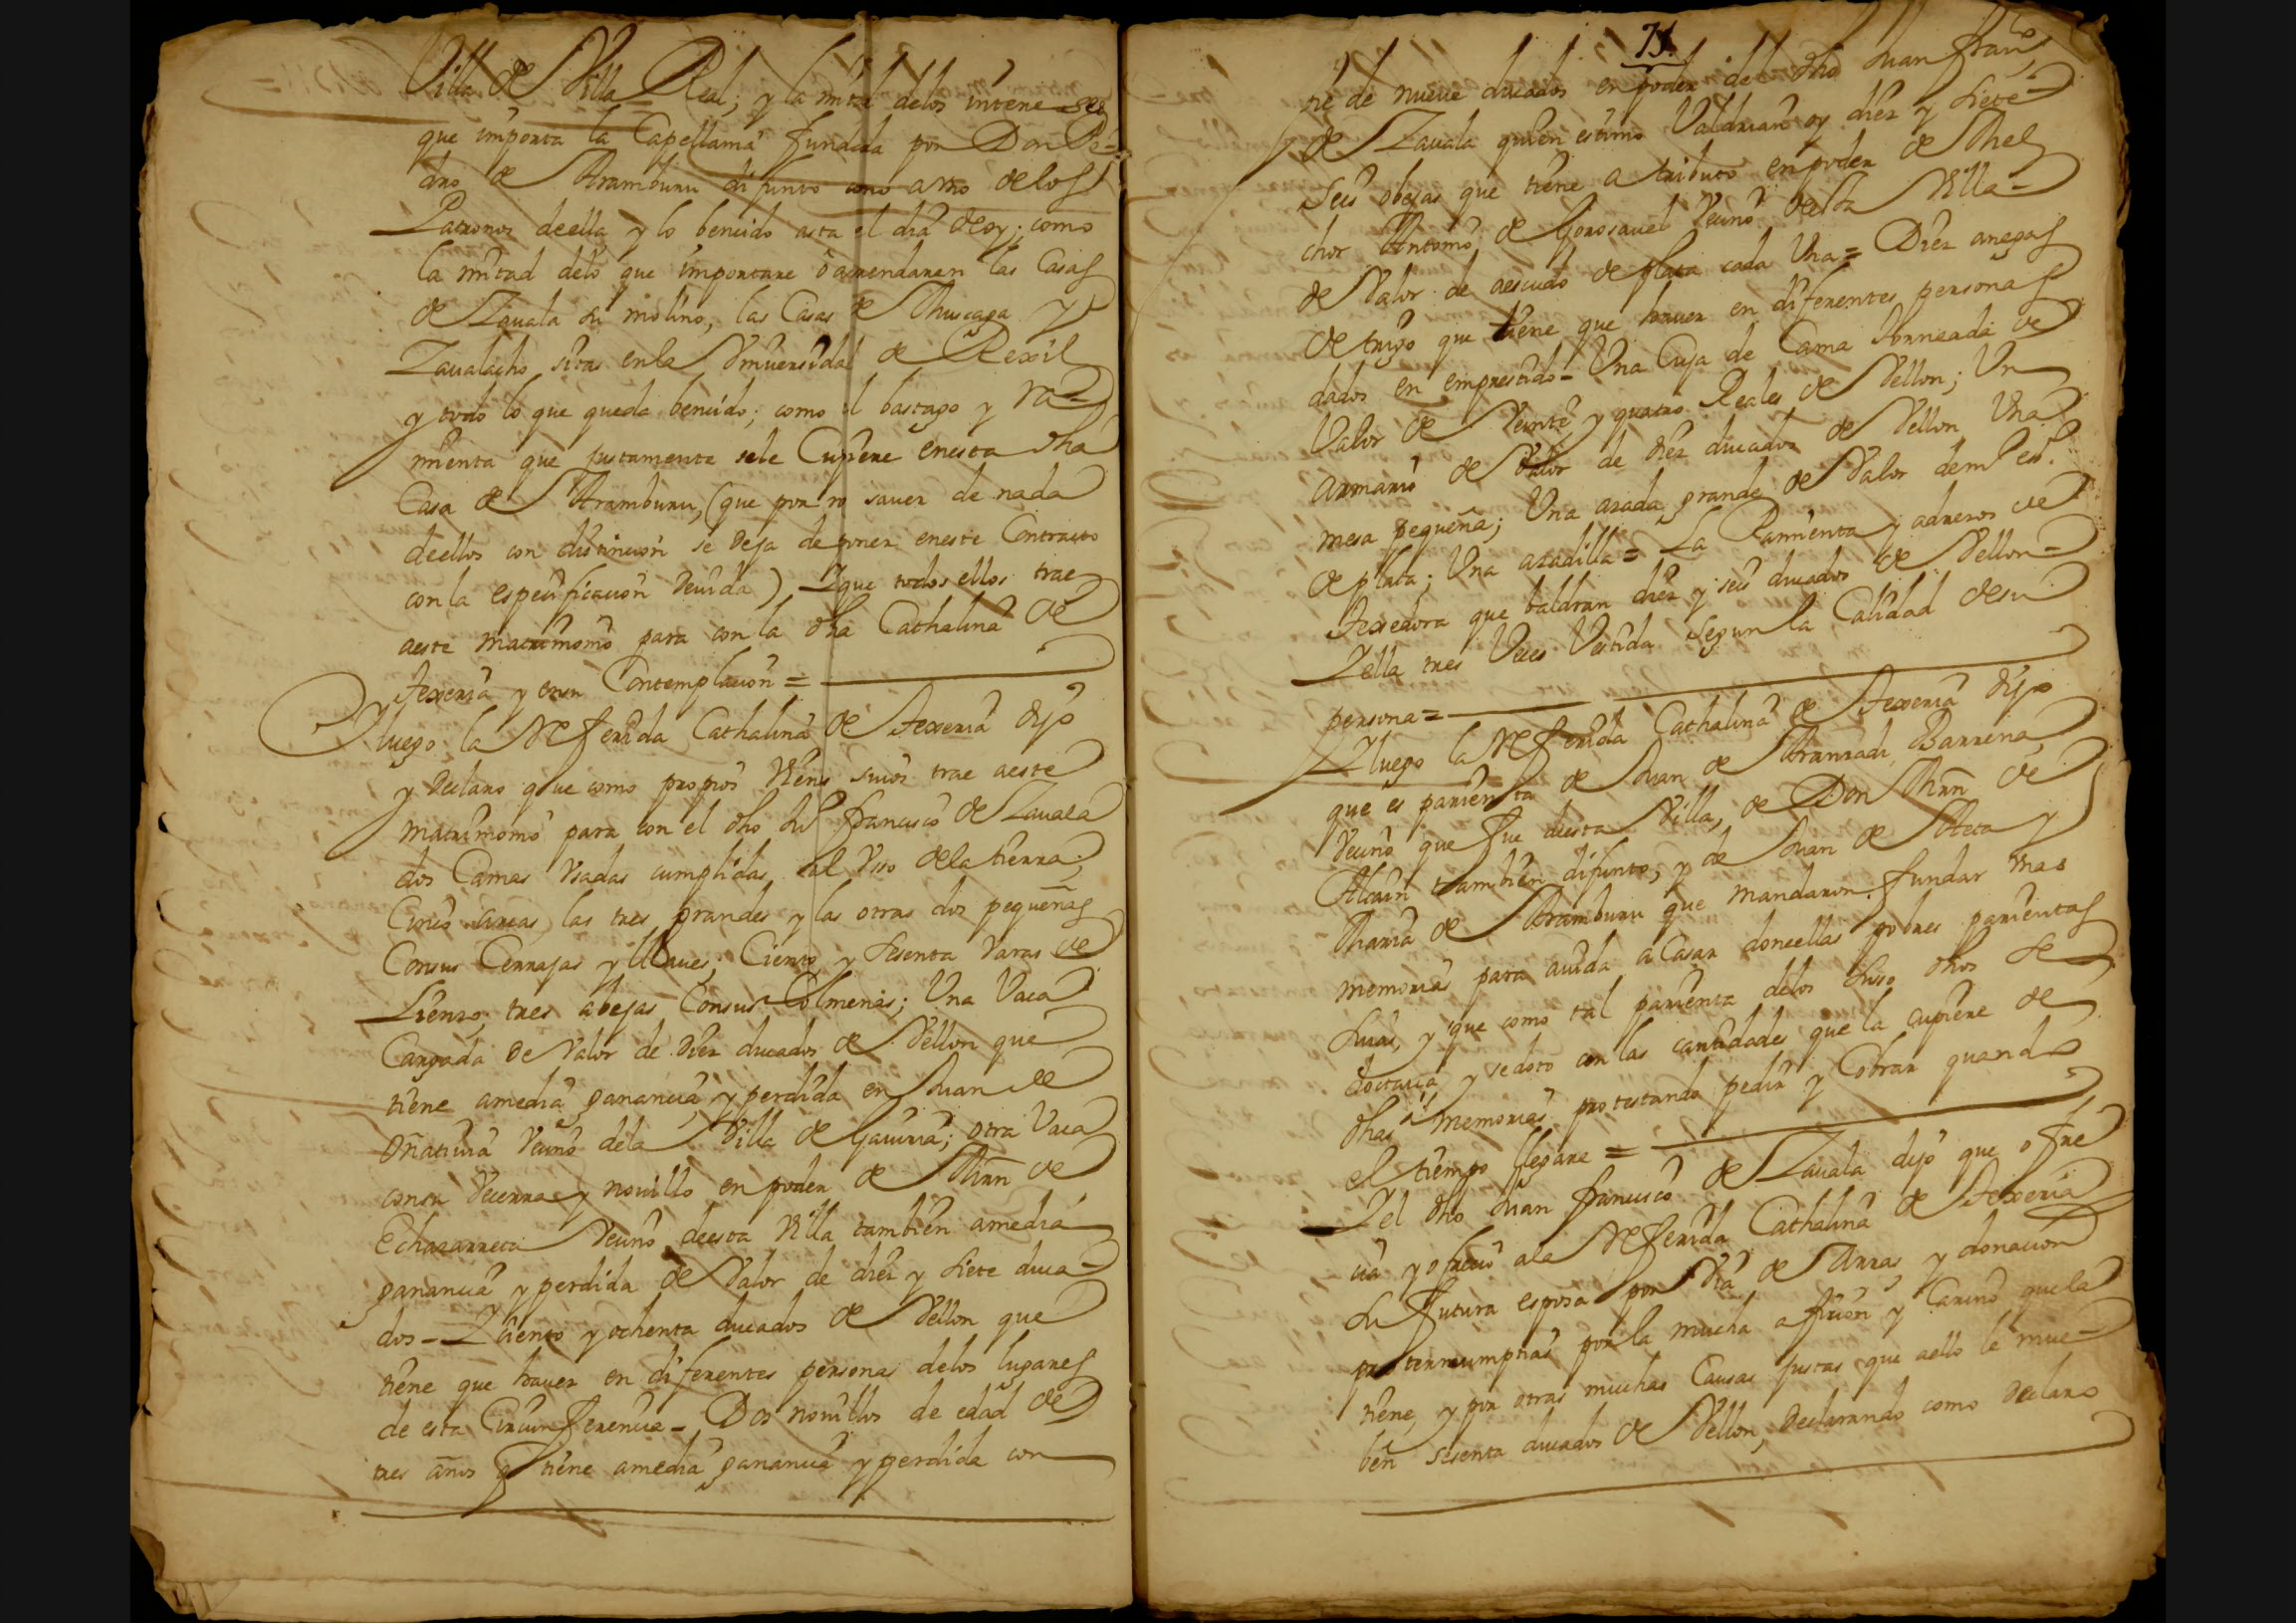 Villa de Villa Real; y la mitad delos interese=ses
que importa la Capellania fundada por Don Pe-
dro de Aramburu difunto como a uno delos
Patronos deella y lo bencido asta el dia deoy; como
la mitad delo que importare o arrendaren las Casas
de Zauala su molino, las Casas de Muscaga y
Zaualacho sitas enla Vniuersidad de Rexil
y todo lo que queda bencido; como el bastago y rra-
mienta que justamente sele Cupiere enesta dha
Casa de Aramburu, (que por no sauer de nada
deellos con distincion se deja deponer eneste Contrato
conla especificacion deuida) Y que todos ellos trae
aeste matrimonio para con la dha Cathalina de
Texeria y en su Contemplacion =
Y luego la Referida Cathalina de Texeria dijo
y declaro que como propios Vienes suios trae aeste
matrimonio para con el dho Ju Francisco de Zauala
dos Camas Vsadas cumplidas al Vso dela tierra;
Cinco arcas, las tres grandes y las otras dos pequeñas
Consus Cerrajas y llaues; Ciento y Sesenta Varas de
Lienzo; tres abejas Consus Colmenas; Una Vaca
Cargada de Valor de Diez ducados de Vellon que
tiene amedia ganancia y perdida en Juan de
Oñatiuia Vecino dela Villa de Gauiria; otra Vaca
consu Vecerra y nouillo enpoder de Mrn de
Echazarreta Vecino deesta Villa tambien amedia
ganancia y perdida de Valor de diez y Siete duca-
dos = Y ciento y ochenta ducados de Vellon que
tiene que hauer en diferentes personas delos lugares
de esta Circunferencia = Dos nouillos de edad de
tres años q tiene amedia ganancia y perdida con
71.
pie de nueue ducados enpoder del dho Juan Franco
de Zauala quien estimo Valdrian oy diez y Siete =
Seis obejas que tiene a tributo enpoder de Mel
chor Antonio de Gorosauel Vecino deesta Villa =
de Valor de aescudo de plata cada Una = Diez anegas
de trigo que tiene que hauer en diferentes personas
dados en emprestido = Una Cuja de Cama torneada de
Valor de Veinte y quatro Reales de Vellon; Un
armario de Valor de diez ducados de Vellon Una
mesa pequeña; Una azada grande de Valor de mº es.
de plata; Una azadilla = La Ramienta y adrezos de
Texedora que baldran diez y seis ducados de Vellon =
Y ella tres Veces Vestida Segun la Calidad desu
persona =
Y luego la Referida Cathalina de Texeria dijo
que es parienta de Juan de Aranzadi Barrena,
Vecino que fue deesta Villa, de Don Mrn de
Alcain tambien difunto, y de Juan de Ateta y
Maria de Aramburu que mandaron fundar Vnas
memorias para auida a Casar doncellas pobres parientas
Suias, y que como tal parienta delos Suso dhos se
doctaua y se doto con las cantidades que la cupiere de
dhas memorias protestando pedir y Cobrar quando
el tiempo llegare =
Y el dho Juan Francisco de Zauala dijo que ofre
cia y ofrecio ala Referida Cathalina de Texeria
Su futura esposa por Via de Arras y donacion
propternumptias por la mucha aficion y Cariño quela
tiene, y por otras muchas Causas justas que aello le mue-
ben sesenta ducados de Vellon, Declarando como Declaro